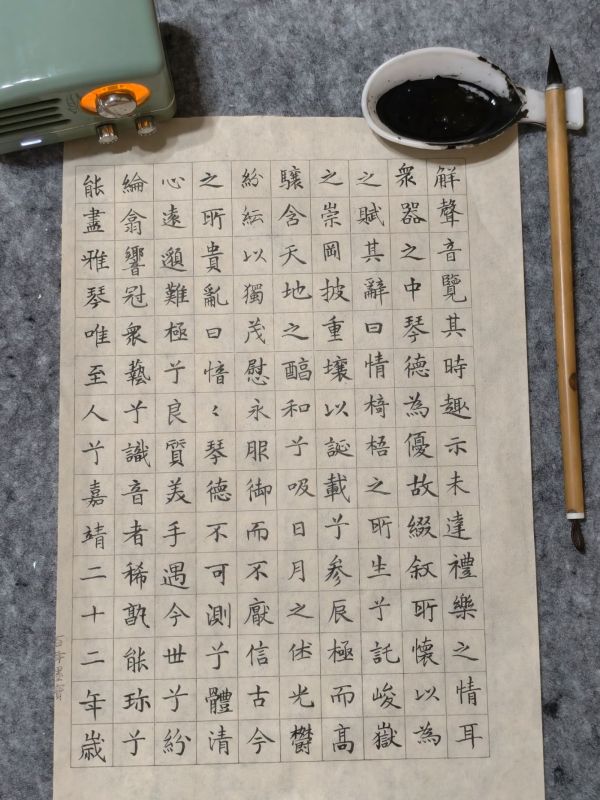 解聲音覽其時趣示未達禮樂之情耳
衆器之中琴德為優故綴敘所懷以為
之賦其辭曰情椅梧之所生兮託峻嶽
之崇岡披重壤以誕載兮參辰極而高
驤含天地之醕和兮吸日月之休光鬱
紛紜以獨茂慰永服御而不厭信古今
之所貴亂曰愔〻琴德不可測兮體清
心遠邈難極兮良質美手遇今世兮紛
綸翕響冠衆藝兮識音者稀孰能珍兮
能盡雅琴唯至人兮嘉靖二十二年歲
百年墨寶